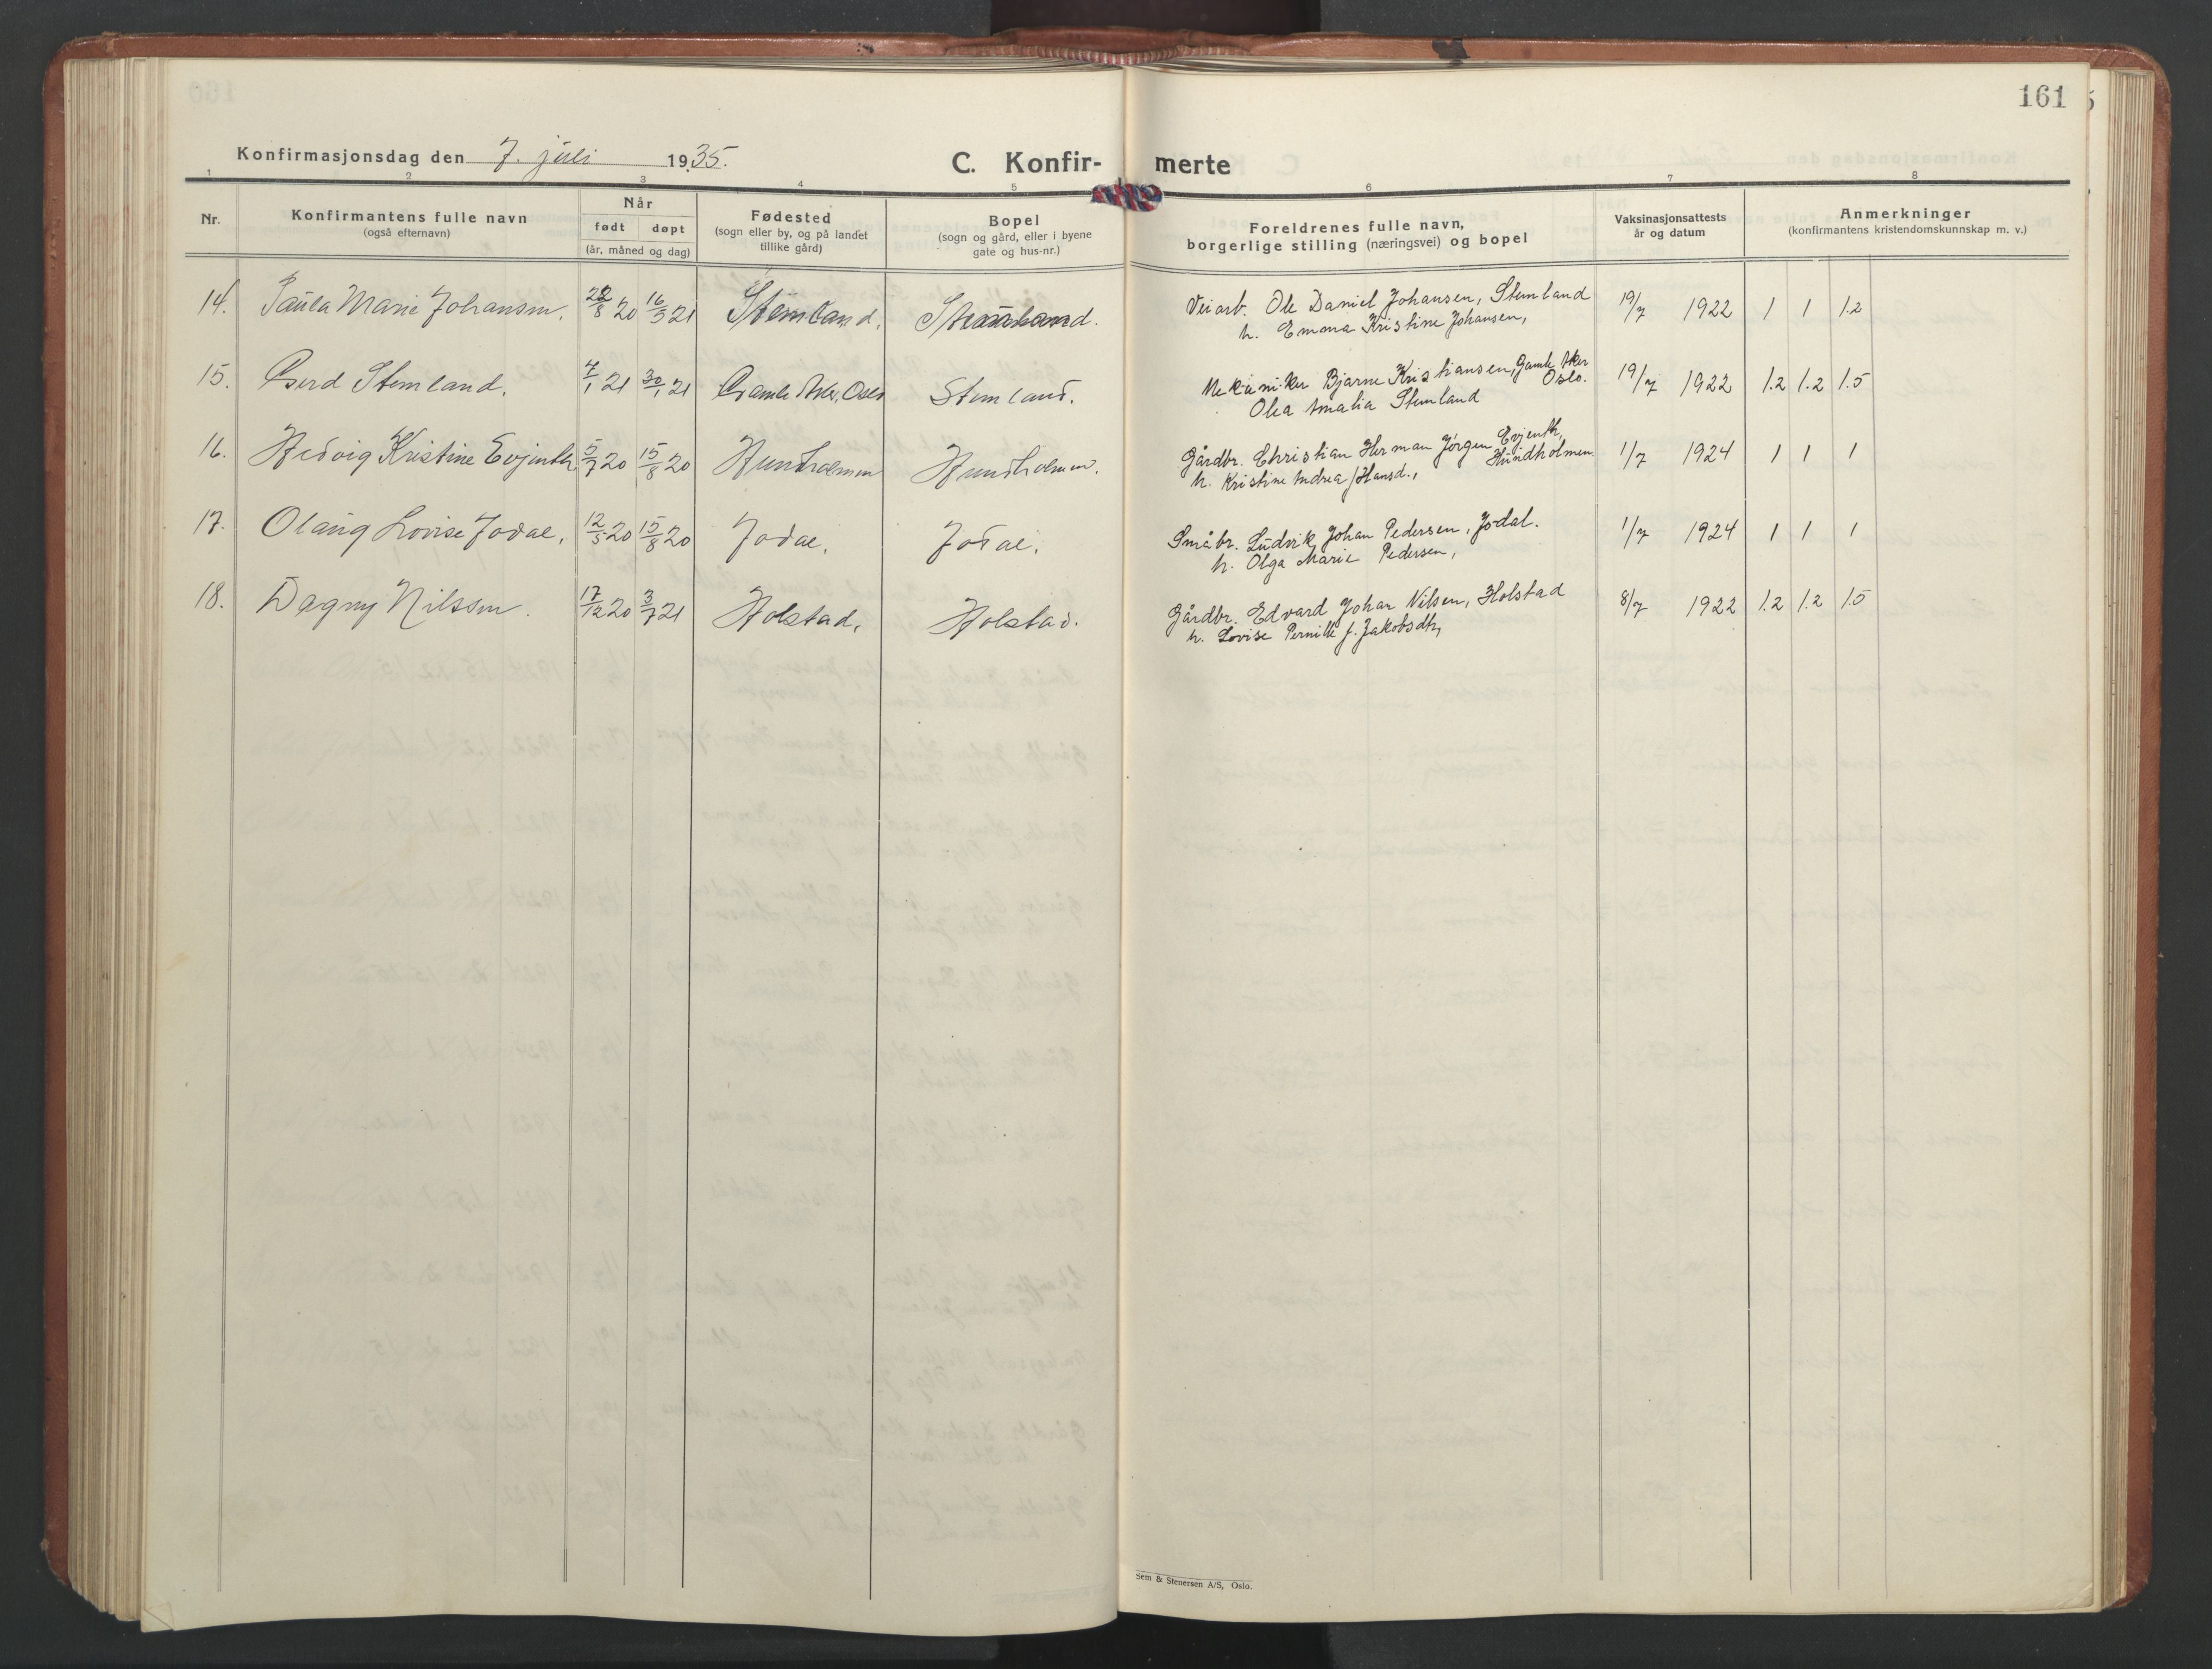 161
Konfirmasjonsdag den 7. juli 1935.
C. Konfir- merte
1 2 3 4 5 6 7 8
Nr.
Konfirmantens fulle navn
(også efternavn)
Når
født døpt
(år, måned og dag)
Fødested
(sogn eller by, og på landet
tillike gård)
Bopel
(sogn og gård, eller i byene
gate og hus-nr.)
Foreldrenes fulle navn,
borgerlige stilling (næringsvei) og bopel
Vaksinasjonsattests
år og datum
Anmerkninger
(konfirmantens kristendomskunnskap m. v.)
14. Paula Marie Johansen. 28/8 20 16/5 21 Stemland. Stemland. Veiarb. Ole Daniel Johansen, Stemland 19/7 1922 1 1 1.2
h. Emma Kristine Johansen,
15. Gerd Stemland. 7/1 21 30/1 21 Gamle Aker, Oslo Stemland. Mekaniker Bjarne Kristiansen, Gamle Aker 19/7 1922 1.2 1.2 1.5
Oslo.
Olea Amalia Stemland
16. Hedvig Kristine Evjenth 5/7 20 15/8 20 Hundholmen Hundholmen. Gårdbr. Christian Herman Jørgen Evjenth, 1/7 1924 1 1 1
Hundholmen.
h. Kristine Andrea f. Hansd.,
17. Olaug Lovise Jodal. 12/5 20 15/8 20 Jodal. Jodal. Småbr. Ludvik Johan Pedersen, Jodal. 1/7 1924 1 1 1
h. Olga Marie Pedersen,
18. Dagny Nilssen. 17/12 20 3/7 21 Holstad. Holstad. Gårdbr. Edvard Johan Nilsen, Holstad 8/7 1922 1.2 1.2 1.5
h. Lovise Pernille f. Jakobsdtr,
Sem & Stenersen A/S, Oslo.